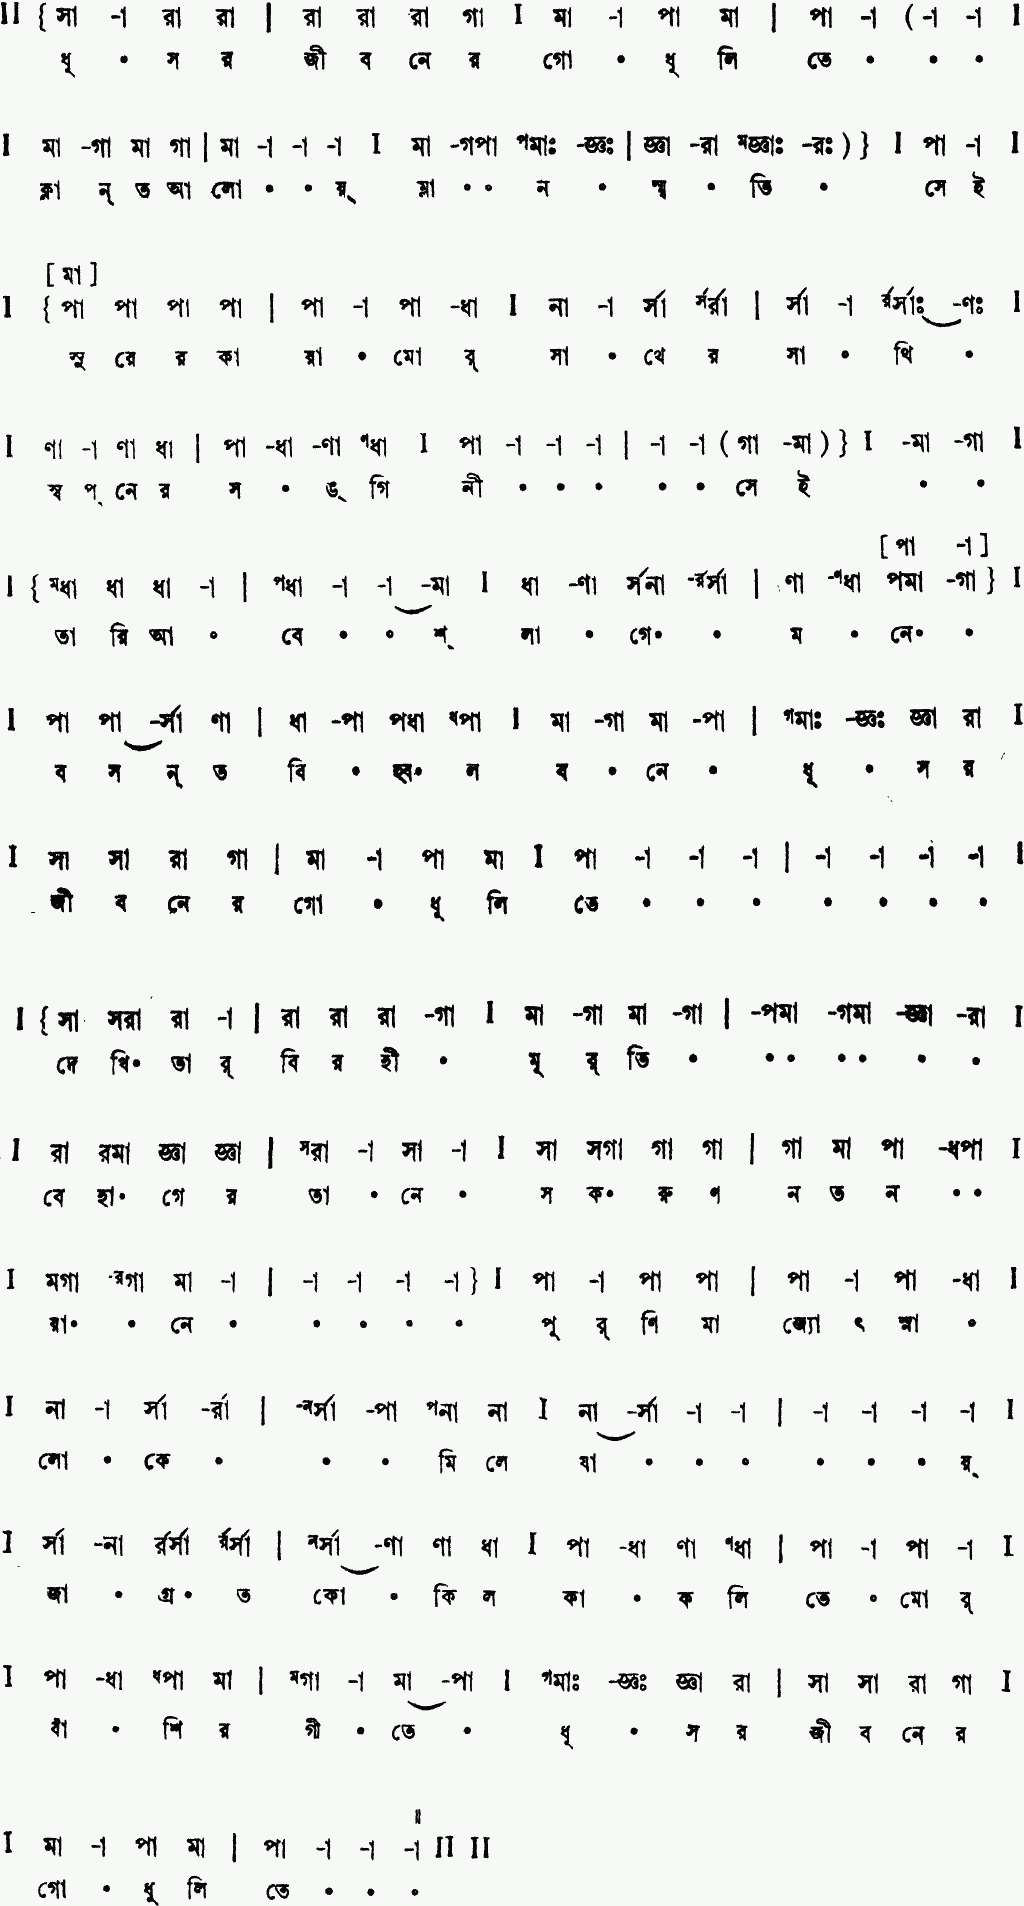 II { সা -া রা রা | রা রা রা গা I মা -া পা মা | পা -া ( -া -া I
ধূ • স র জী ব নে র গো • ধূ লি তে • • •
I মা -গা মা গা | মা -া -া -া I মা -গপা ᵖমাঃ -জ্ঞঃ | জ্ঞা -রা ᵐজ্ঞাঃ -রঃ ) } I পা -া I
ক্লা ন্ ত আ লো • • য়্ ম্লা • • ন • স্মৃ • তি • সে ই
[ মা ]
I { পা পা পা পা | পা -া পা -ধা I না -া র্সা র্সর্রা | র্সা -া র্রর্সাঃ -ণঃ I
সু রে র কা য়া • মো র্ সা • থে র সা • থি •
I ণা -া ণা ধা | পা -ধা -ণা ণধা I পা -া -া -া | -া -া ( গা -মা ) } I -মা -গা I
স্ব প্ নে র স • ঙ্ গি নী • • • • • সে ই • •
[ পা -া ]
I { মধা ধা ধা -া | পধা -া -া -মা I ধা -ণা র্সনা -র্রর্সা | ণা -ণধা পমা -গা } I
তা রি আ • বে • • শ্ লা • গে• • ম • নে• •
I পা পা -র্সা ণা | ধা -পা পধা ধপা I মা -গা মা -পা | গমাঃ -জ্ঞঃ জ্ঞা রা I
ব স ন্ ত বি • হ্ব• ল ব • নে • ধূ • স র
I সা সা রা গা | মা -া পা মা I পা -া -া -া | -া -া -া -া I
জী ব নে র গো • ধূ লি তে • • • • • • •
I { সা সরা রা -া | রা রা রা -গা I মা -গা মা -গা | -পমা -গমা -জ্ঞা -রা I
দে খি• তা র্ বি র হী • মূ র্ তি • • • • • • •
I রা রমা জ্ঞা জ্ঞা | সরা -া সা -া I সা সগা গা গা | গা মা পা -ধপা I
বে হা• গে র তা • নে • স ক• রু ণ ন ত ন • •
I মগা -রগা মা -া | -া -া -া -া } I পা -া পা পা | পা -া পা -ধা I
য়া• • নে • • • • • পূ র্ ণি মা জ্যো ৎ স্না •
I না -া র্সা -র্রা | -নর্সা -পা পনা না I না -র্সা -া -া | -া -া -া -া I
লো • কে • • • মি লে যা • • • • • • য়্
I র্সা -না র্রর্সা র্রর্সা | নর্সা -ণা ণা ধা I পা -ধা ণা ণধা | পা -া পা -া I
জা • গ্র• ত কো • কি ল কা • ক লি তে • মো র্
I পা -ধা ধপা মা | মগা -া মা -পা I গমাঃ -জ্ঞঃ জ্ঞা রা | সা সা রা গা I
বাঁ • শি র গী • তে • ধূ • স র জী ব নে র
I মা -া পা মা | পা -া -া -া II II
গো • ধূ লি তে • • •